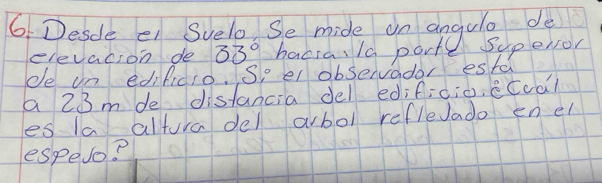 6. Desde el Suelo, Se mide un angulo de
elevación de 33° hacia la parte Superior
de un edificio. Si el observador está
a 23 m de distancia del edificio. ¿Cuál
es la altura del arbol reflejado en el
espejo?